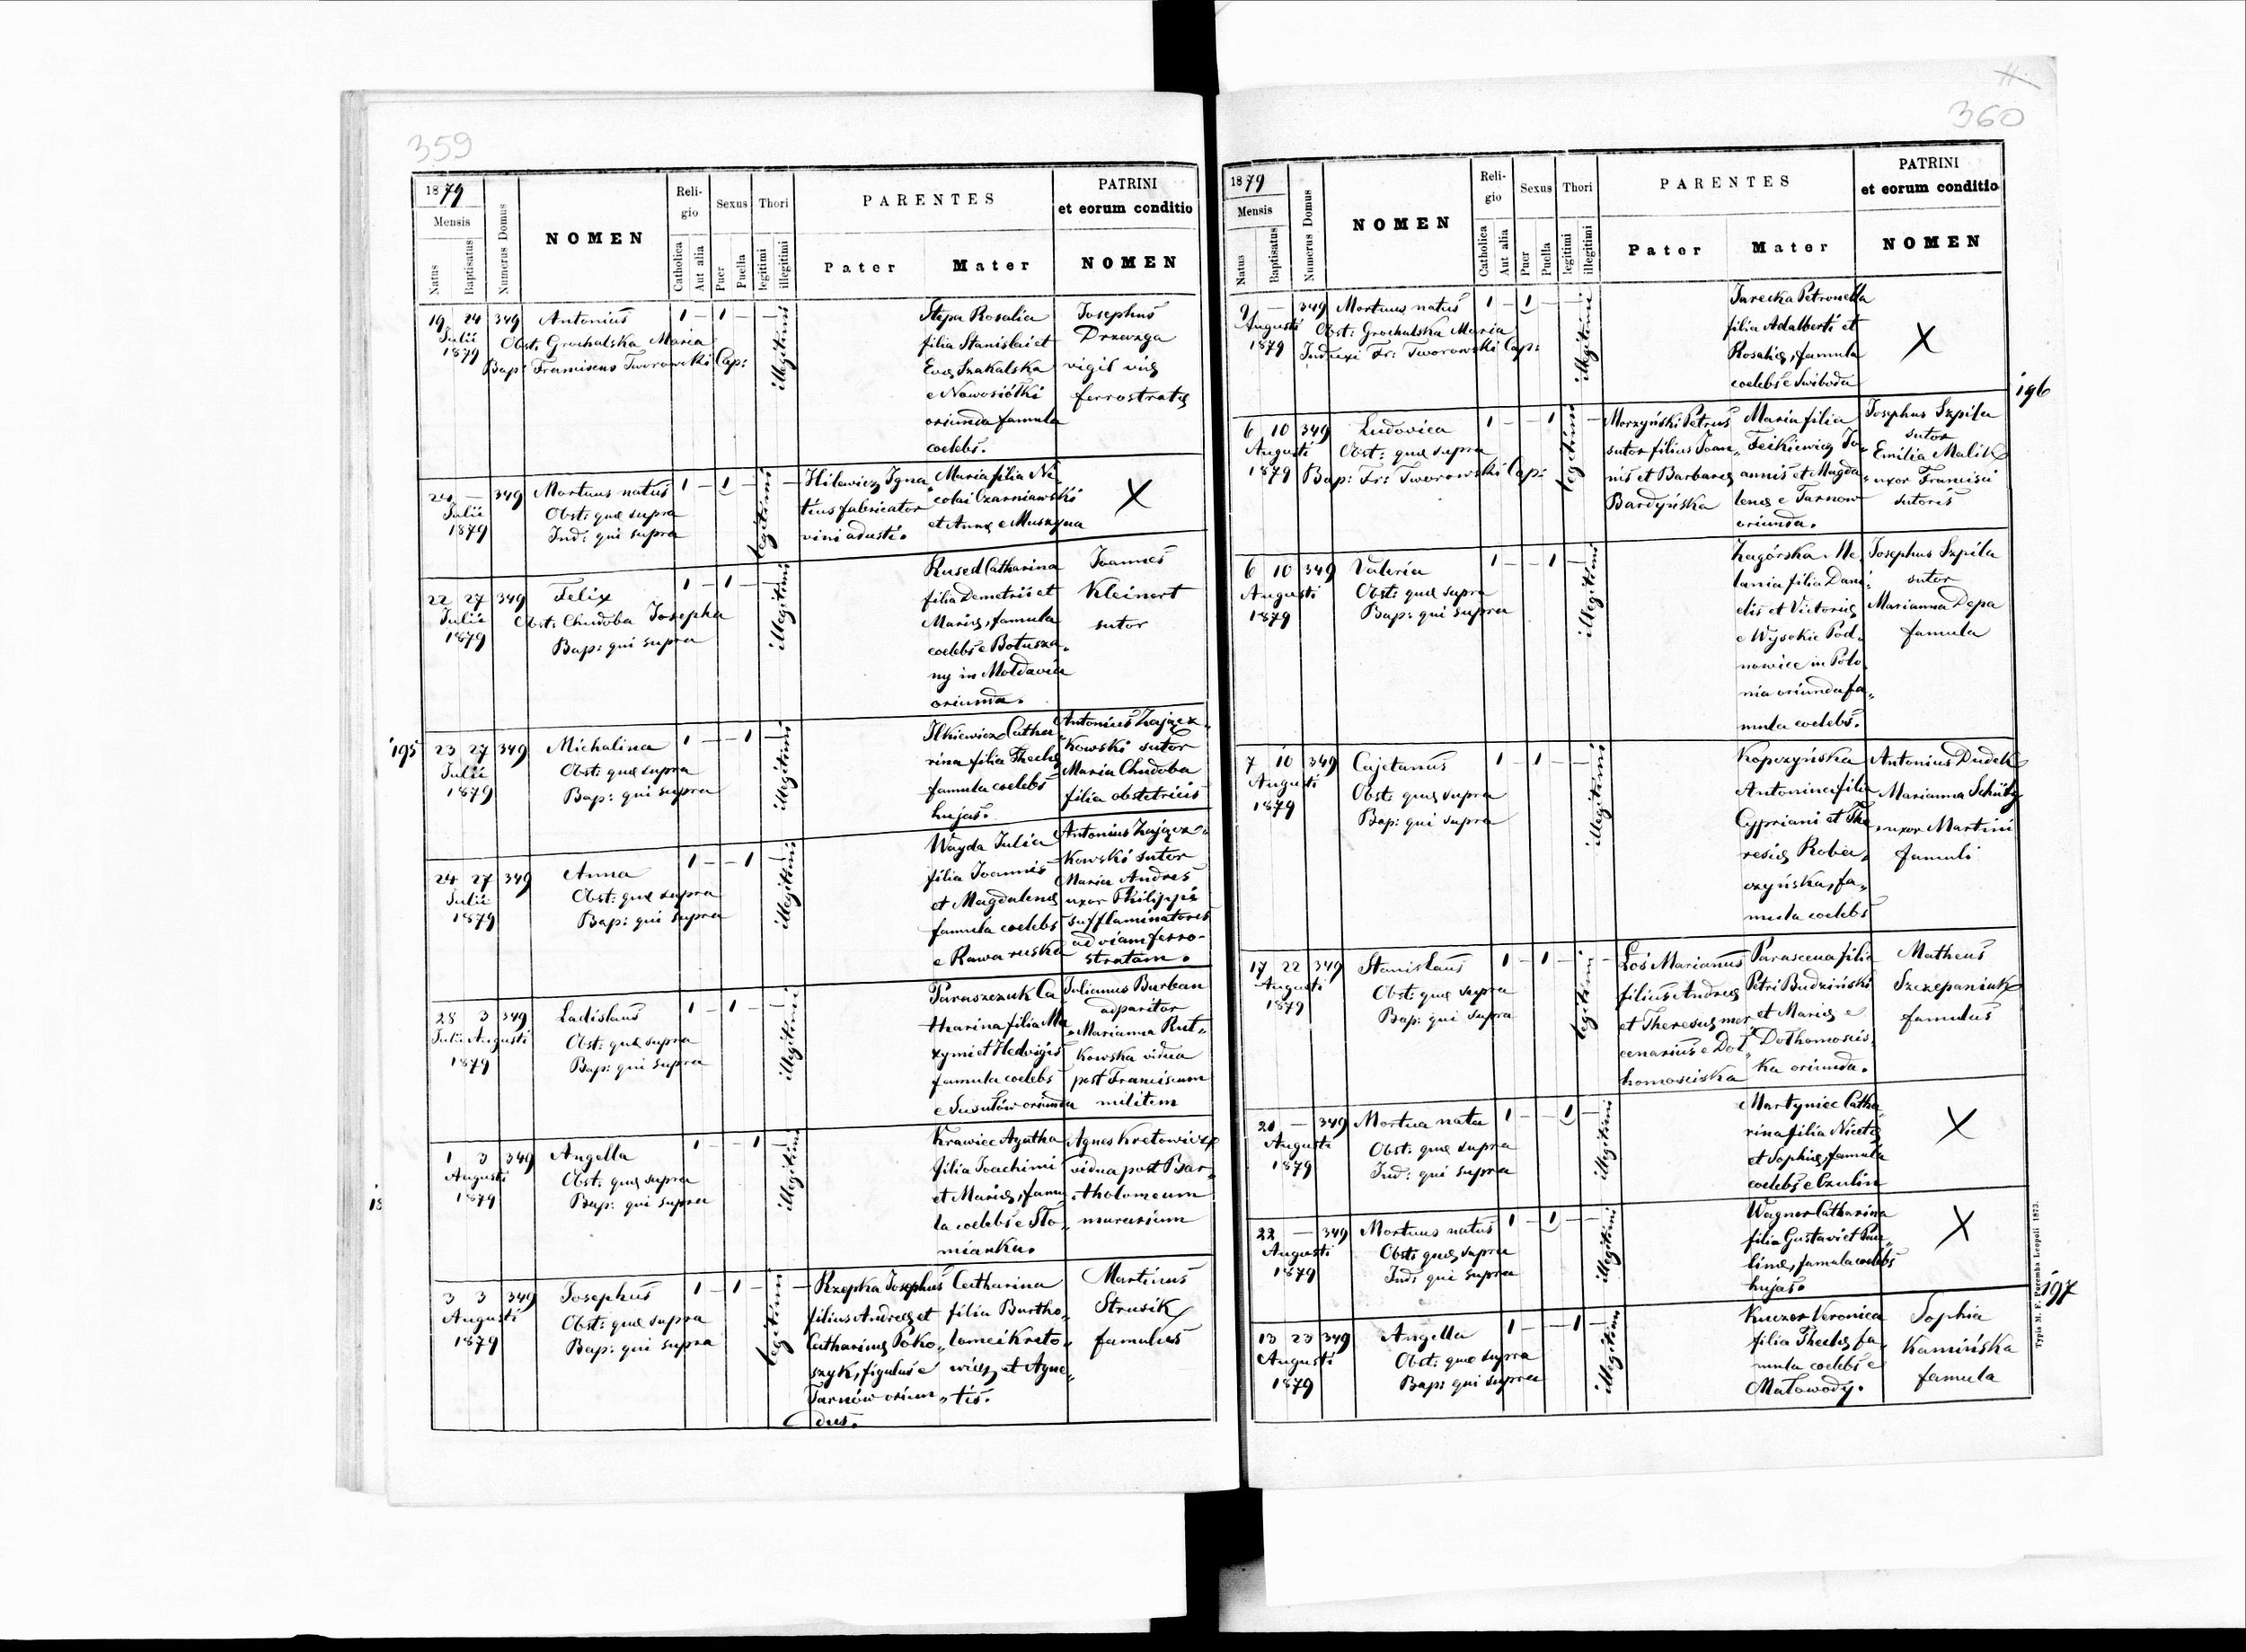 359
1879
Mensis
Natus
Baptisatus
Numerus Domus
NOMEN
Reli-
gio
Catholica
Aut alia
Sexus
Puer
Puella
Thori
legitimi
illegitimi
PARENTES
Pater
Mater
PATRINI
et eorum conditio
NOMEN
19 24 349 Antonius 1 – 1 – –
Julii
1879
Obst: Grochalska Maria
Bap: Franciscus Tworowski Cap:
illegitimi
Stepa Rosalia
filia Stanislai et
Evæ Szakalska
e Nowosiółki
oriunda famula
coelebs.
Josephus
Drzazga
vigil viæ
ferrostratæ
24 — 349 Mortuus natus 1 – 1 – –
Julii
1879
Obst: quæ supra
Ind: qui supra
legitimi
Hilewicz Igna„
tius fabricator
vini adusti.
Maria filia Ni„
colai Czarniawski
et Annæ e Muszyna
X
22 27 349 Felix 1 – 1 –
Julii
1879
Obst: Chudoba Josepha
Bap: qui supra
illegitimi
Rused Catharina
filia Demetrii et
Mariæ, famula
coelebs e Botusza„
ny in Moldavia
oriunda.
Joannes
Kleinert
sutor
195
23 27 349 Michalina 1 – – 1
Julii
1879
Obst: quæ supra
Bap: qui supra
illegitimi
Ilkiewicz Catha„
rina filia Theclæ
famula coelebs
hujas.
Antonius Zającz„
kowski sutor
Maria Chudoba
filia obstetricis
24 27 349 Anna 1 – – 1
Julii
1879
Obst: quæ supra
Bap: qui supra
illegitimi
Wayda Julia
filia Joannis
et Magdalenæ
famula coelebs
e Rawa ruska
Antonius Zającz„
kowski sutor
Maria Andres
uxor Philippi
sufflaminatoris
ad viam ferro-
stratam.
28 3 349 Ladislaus 1 – 1 –
Julii Augusti
1879
Obst: quæ supra
Bap: qui supra
illegitimi
Paraszczuk Ca„
tharina filia Ma„
xymi et Hedvigis
famula coelebs
e Susułów oriunda
Julianus Burban
adparitor
Marianna Rut„
kowska vidua
post Franciscum
militem
1 3 349 Angella 1 – – 1
Augusti
1879
Obst: quæ supra
Bap: qui supra
illegitimi
Krawiec Agatha
filia Joachimi
et Mariæ, famu„
la coelebs e Sło„
mianka.
Agnes Kretowicz
vidua post Bar„
tholomeum
murarium
3 3 349 Josephus 1 – 1 – –
Augusti
1879
Obst: quæ supra
Bap: qui supra
legitimi
Rzepka Josephus
filius Andreæ et
Catharinæ Poko„
szyk, figulus e
Tarnów oriun„
dus.
Catharina
filia Bartho„
lomei Kreto„
wicz et Agne„
tis.
Martinus
Strusik
famulus
360
1879
Mensis
Natus
Baptisatus
Numerus Domus
NOMEN
Reli-
gio
Catholica
Aut alia
Sexus
Puer
Puella
Thori
legitimi
illegitimi
PARENTES
Pater
Mater
PATRINI
et eorum conditio
NOMEN
9 — 349 Mortuus natus 1 – 1 – –
Augusti
1879
Obst: Grochalska Maria
Induxi Fr: Tworowski Cap:
illegitimi
Jarecka Petronella
filia Adalberti et
Rosaliæ, famula
coelebs e Swiboda
X
196
6 10 349 Ludovica 1 – – 1 –
Augusti
1879
Obst: quæ supra
Bap: Fr: Tworowski Cap:
legitimi
Morzyński Petrus
sutor filius Joan„
nis et Barbaræ
Bardyńska
Maria filia
Feikiewicz Jo„
annis et Magda„
lenæ e Tarnow
oriunda.
Josephus Szpila
sutor
Emilia Malik
uxor Francisci
sutoris
6 10 349 Valeria 1 – – 1
Augusti
1879
Obst: quæ supra
Bap: qui supra
illegitimi
Zagórska Me„
lania filia Dani„
elis et Victoriæ
e Wysokie Pod„
nowice in Polo„
nia oriunda fa„
mula coelebs.
Josephus Szpila
sutor
Marianna Depa
famula
7 10 349 Cajetanus 1 – 1 – –
Augusti
1879
Obst: quæ supra
Bap: qui supra
illegitimi
Kopczyńska
Antonina filia
Cypriani et The„
resiæ Roba„
czyńska, fa„
mula coelebs
Antonius Dudek
Marianna Schütz
uxor Martini
famuli
17 22 349 Stanislaus 1 – 1 – –
Augusti
1879
Obst: quæ supra
Bap: qui supra
legitimi
Łoś Marianus
filius Andreæ
et Theresiæ mer„
cenarius e Doł„
homosciska
Parascena filia
Petri Budziński
et Mariæ e
Dołhomoscis„
ka oriunda.
Matheus
Szczepaniuk
famulus
20 — 349 Mortua nata 1 – – 1 –
Augusti
1879
Obst: quæ supra
Ind: qui supra
illegitimi
Martyniec Catha„
rina filia Nicetæ
et Sophiæ, famula
coelebs e Czulin
X
22 — 349 Mortuus natus 1 – 1 – –
Augusti
1879
Obst: quæ supra
Ind: qui supra
illegitimi
Wagner Catharina
filia Gustavi et Pau„
linæ, famula coelebs
hujas.
X
197
13 23 349 Angella 1 – – 1 –
Augusti
1879
Obst: quæ supra
Bap: qui supra
illegitimi
Kuczer Veronica
filia Theclæ fa„
mula coelebs e
Małowody.
Sophia
Kamińska
famula
Typis M. F. Poremba Leopoli 1873.